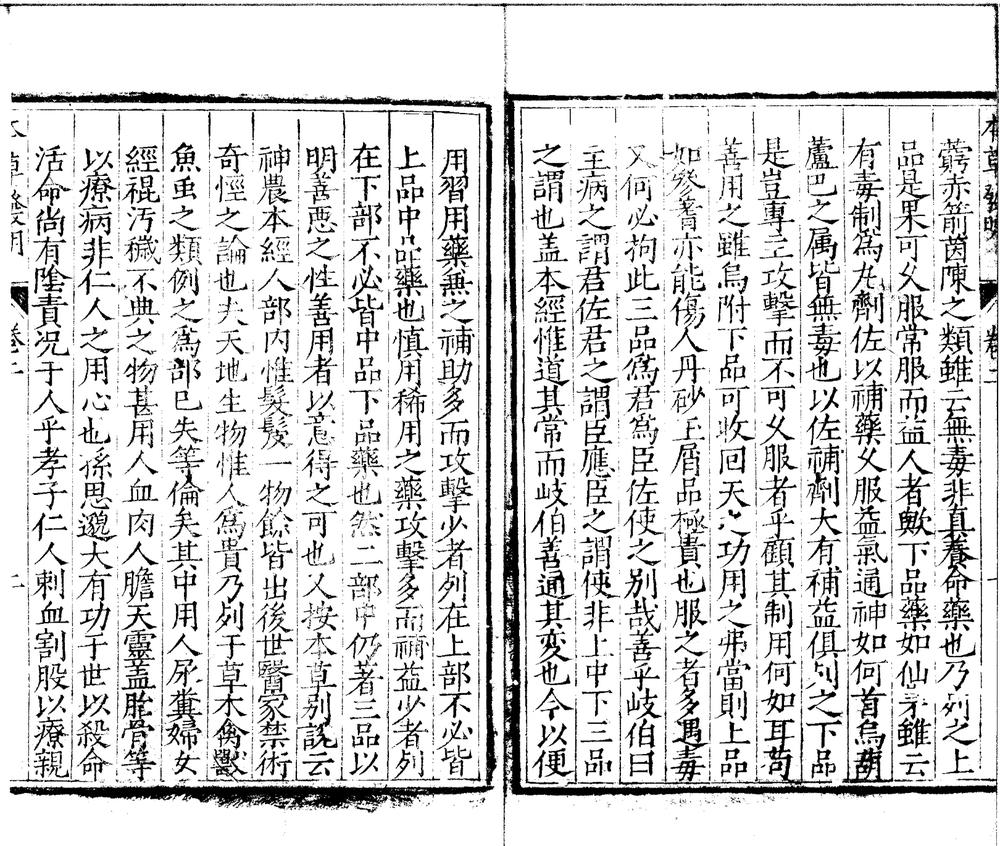 藭赤箭茵陳之類雖云無毒非真養命藥也乃列之上
品是果可久服常服而益人者歟下品藥如仙茅雖云
有毒制為丸劑佐以補藥久服益氣通神如何首烏葫
蘆巴之属皆無毒也以佐補劑大有補益俱列之下品
是豈專主攻擊而不可久服者乎顧其制用何如耳苟
善用之雖烏附下品可收回天之功用之弗當則上品
如參耆亦能傷人丹砂玉屑品極貴也服之者多遇毒
又何必拘此三品為君為臣佐使之别哉善乎岐伯曰
主病之謂君佐君之謂臣應臣之謂使非上中下三品
之謂也盖本經惟道其常而岐伯善通其變也今以便
本草發明 卷二
用習用藥無之補助多而攻擊少者列在上部不必皆
上品中品藥也慎用稀用之藥攻擊多而補益少者列
在下部不必皆中品下品藥也然二部中仍著三品以
明善惡之性善用者以意得之可也又按本草别說云
神農本經人部內惟髮髲一物餘皆出後世醫家禁術
奇怪之論也夫天地生物惟人為貴乃列于草木禽獸
魚虫之類例之為部已失等倫矣其中用人尿糞婦女
經裩汚穢不典之物甚用人血肉人膽天靈盖胞骨等
以療病非仁人之用心也孫思邈大有功于世以殺命
活命尚有隂責况于人乎孝子仁人刺血割股以療親
本草發明 卷二 二